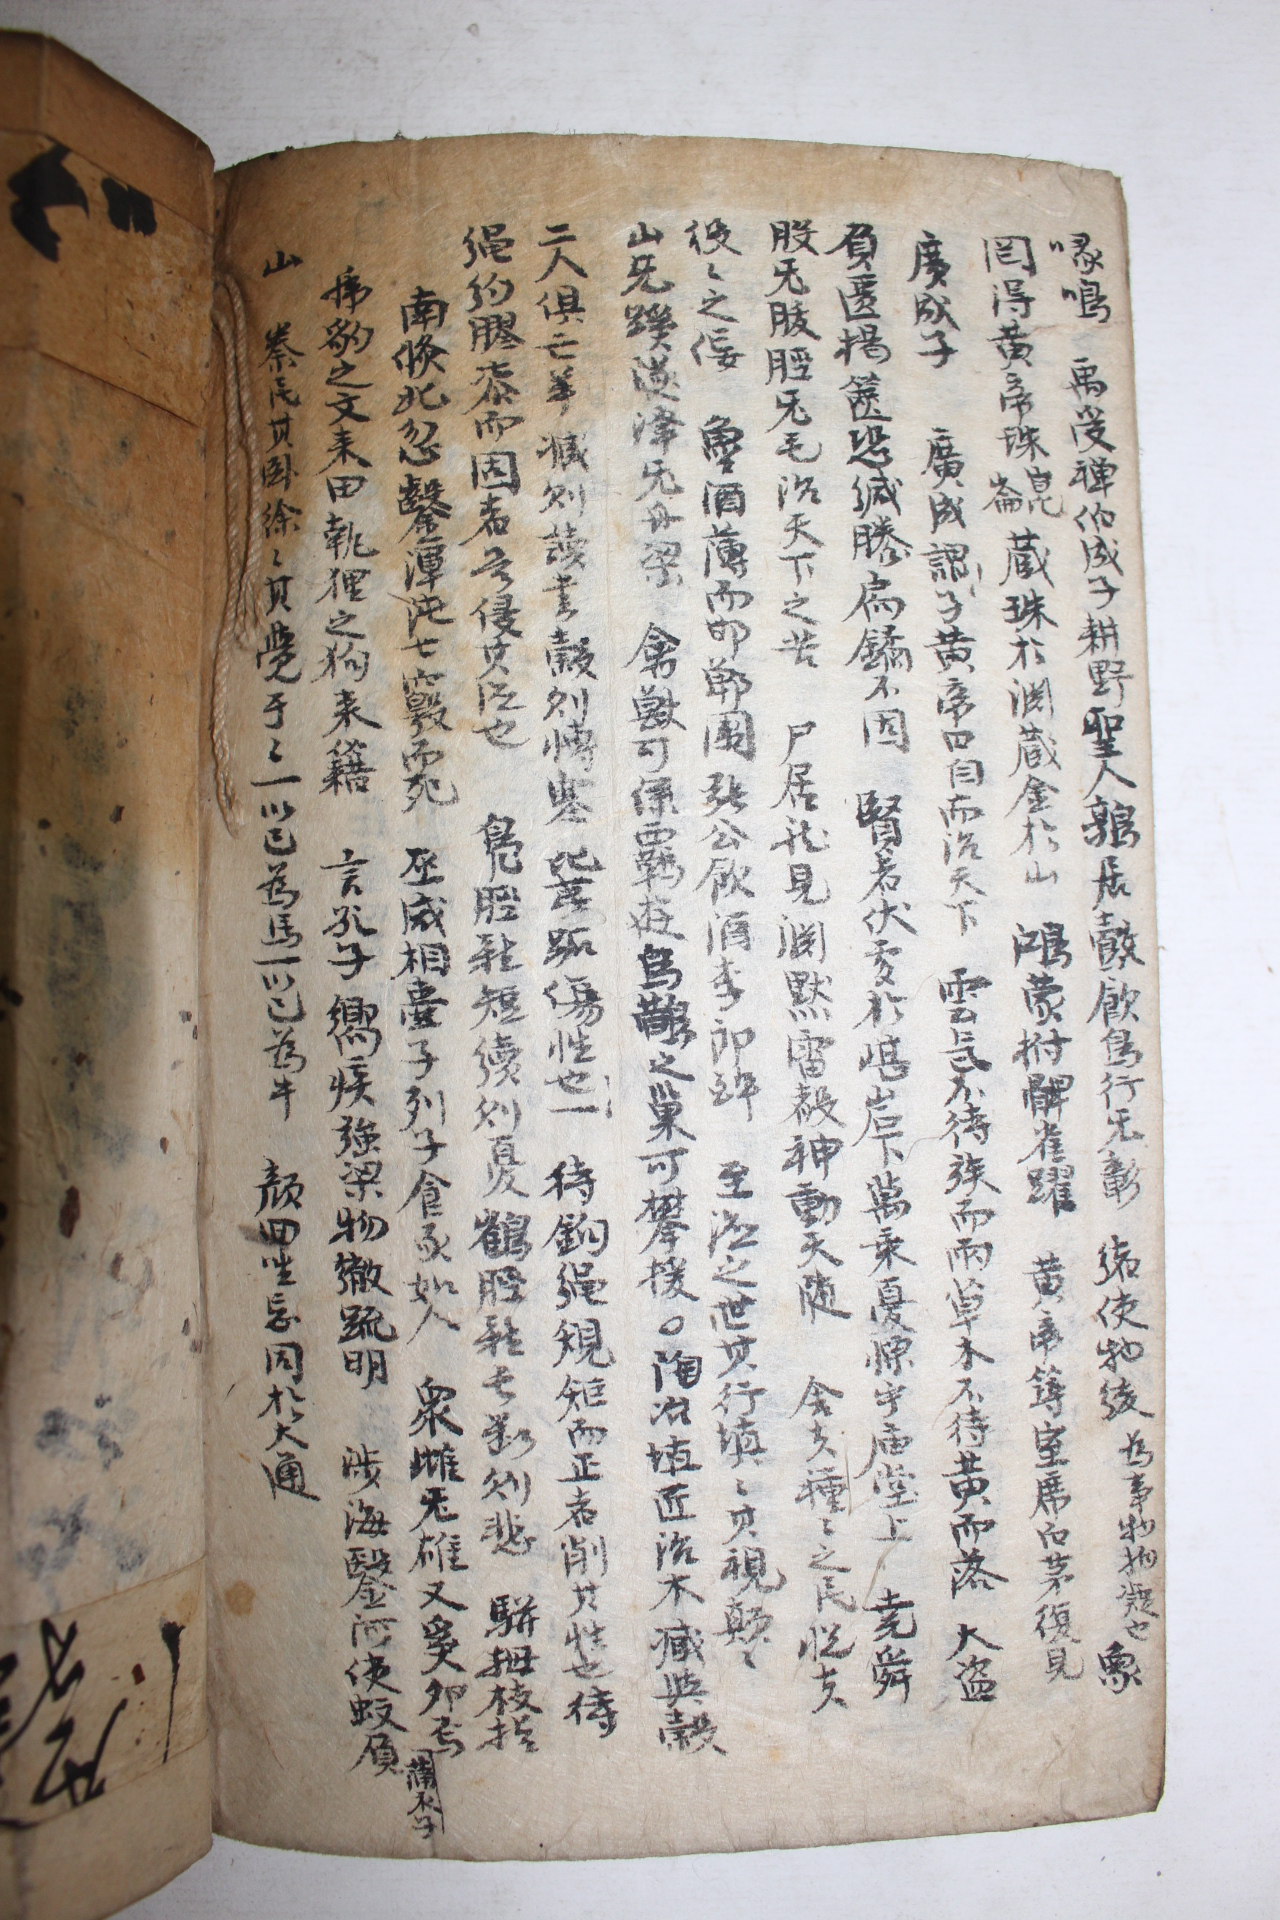 喙鳴 禹受禪伯成子耕野聖人鶉居鷇飮鳥行无彰 緖使物緩 為事物拘礙也 象
罔得黃帝珠 崑崙 藏珠於淵藏金於山 鴻蒙拊髀雀躍 黃帝築室席白茅復見
廣成子 廣成謂子黃帝曰自而治天下 雲气不待族而雨草木不待黃而落 大盜
負匱揭篋恐緘縢扃鐍不固 賢者伏處於嵁岩下萬乘憂慄乎庙堂上 堯舜
股无胈脛无毛治天下之苦 尸居龍見淵默雷聲神動天随 舍夫種〻之民悅夫
役〻之佞 魯酒薄而邯鄲圍張公飮酒李郎醉 至治之世其行填〻其視顚〻
山无蹊澤无舟梁 禽獸可係羈遊烏鵲之巢可攀援○陶治埴匠治木 臧與穀
二人俱亡羊 臧則讀書穀則博塞 此 傷性也一 待鉤绳規矩而正者削其性也待
绳約膠柒而固者 侵其德也 鳧脛雖短續則憂鶴脛雖長斷則悲 騈拇枝指
南倏北忽鑿渾沌七竅而死 巫咸相壺子列子食豕如人 衆雌无雄又奚卵焉 蒲衣子
虎豹之文来田執狸之狗来籍 言孔子 嚮疾強梁物徹疏明 涉海鑿河使蚊負
山 泰氏其卧徐〻其覺于〻一以己為馬一以己為牛 顏回坐忘同於大通